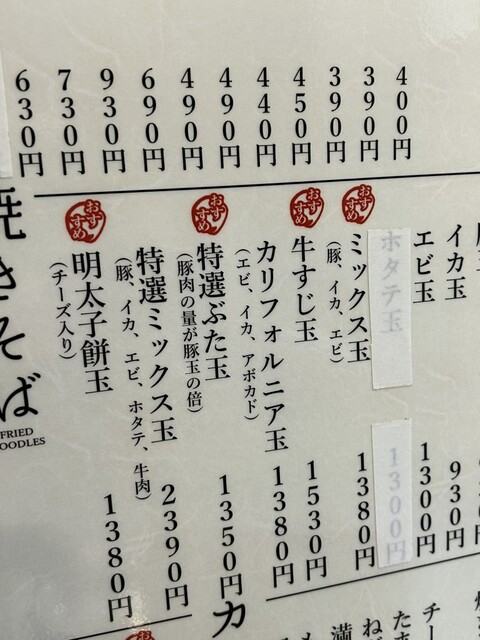 400円
390円
390円
450円
440円
490円
490円
690円
930円
730円
630円
イカ玉
930円
エビ玉
1300円
ホタテ玉
1300円
おすすめ
ミックス玉
(豚、イカ、エビ)
1380円
おすすめ
牛すじ玉
1530円
カリフォルニア玉
(エビ、イカ、アボカド)
1380円
おすすめ
特選ぶた玉
(豚肉の量が豚玉の倍)
1350円
特選ミックス玉
(豚、イカ、エビ、ホタテ、牛肉)
2390円
おすすめ
明太子餅玉
(チーズ入り)
1380円
焼きそば
FRIED
NOODLES
チー
たす
ねぎ
満
カ